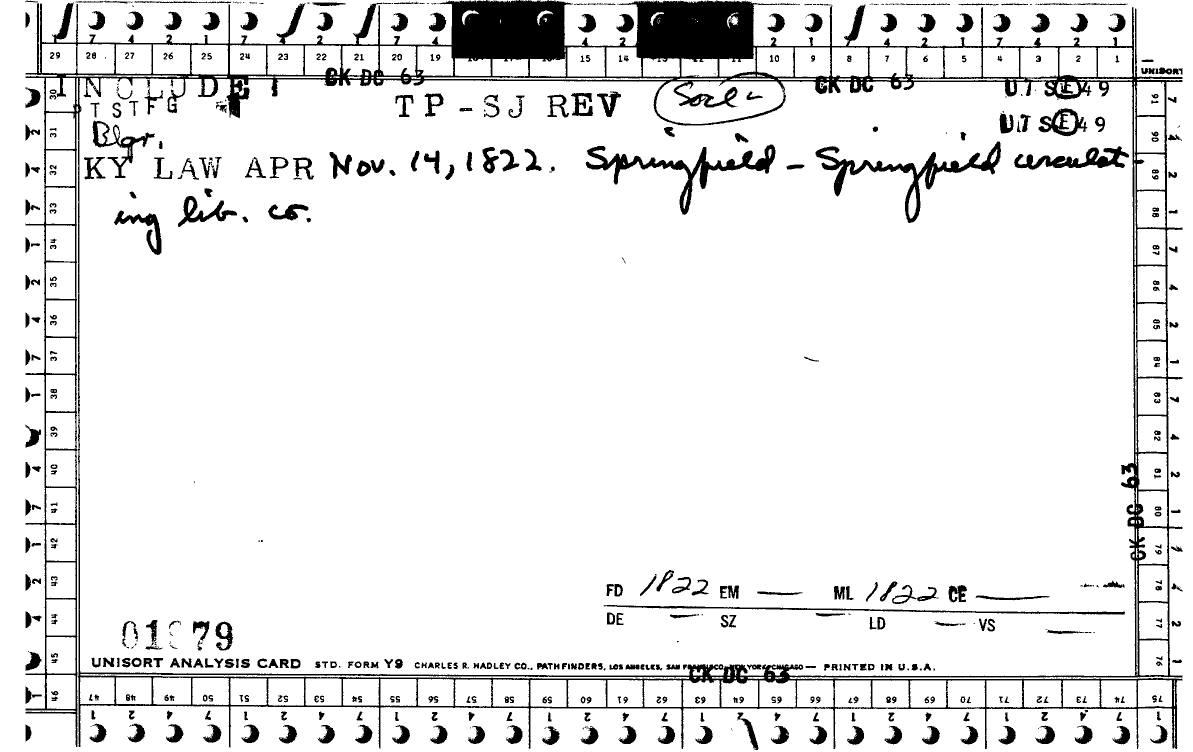 7 4 2 1 7 4 2 1 7 4 4 2 2 1 7 4 2 1 7 4 2 1
29 28 27 26 25 24 23 22 21 20 19 15 14 10 9 8 7 6 5 4 3 2 1
UNISORT
INCLUDE CK DC 63 CK DC 63 U.T S(E)49
PTSTFG TP-SJ REV Soc'l- U.T S(E)49
Blgr.
KY LAW APR Nov. 14, 1822. Springfield - Springfield circulat-
ing lib. co.
30 31 32 33 34 35 36 37 38 39 40 41 42 43 44 45 46
91 90 89 88 87 86 85 84 83 82 81 80 79 78 77 76
CK DC 63
FD 1822 EM — ML 1822 CE —
DE — SZ — LD — VS —
UNISORT ANALYSIS CARD STD. FORM Y9 CHARLES R. HADLEY CO., PATHFINDERS, LOS ANGELES, SAN FRANCISCO, NEW YORK, CHICAGO — PRINTED IN U.S.A.
CK DC 63
47 48 49 50 51 52 53 54 55 56 57 58 59 60 61 62 63 64 65 66 67 68 69 70 71 72 73 74 75